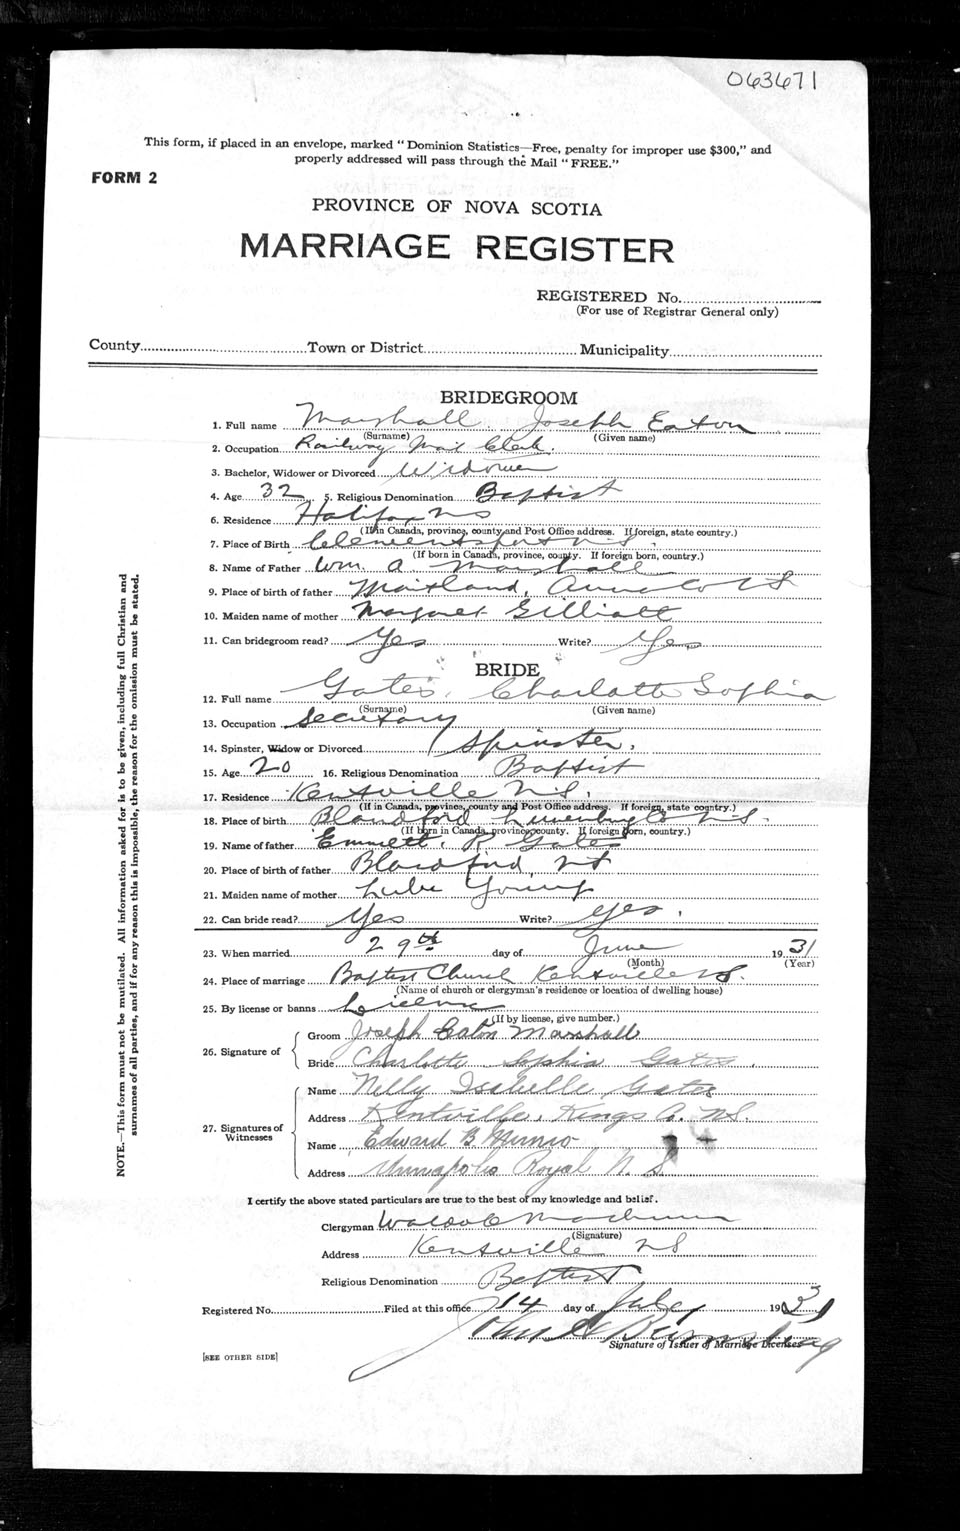 063671
This form, if placed in an envelope, marked "Dominion Statistics—Free, penalty for improper use $300," and
properly addressed will pass through the Mail "FREE."
FORM 2
PROVINCE OF NOVA SCOTIA
MARRIAGE REGISTER
REGISTERED No.
(For use of Registrar General only)
County Town or District Municipality
BRIDEGROOM
1. Full name Marshall Joseph Eaton
(Surname) (Given name)
2. Occupation Railway Mail Clerk.
3. Bachelor, Widower or Divorced Widower
4. Age 32 5. Religious Denomination Baptist
6. Residence Halifax NS
(If in Canada, province, county and Post Office address. If foreign, state country.)
7. Place of Birth Clementsport N S
(If born in Canada, province, county. If foreign born, country.)
8. Name of Father Wm. A. Marshall
9. Place of birth of father Maitland, Anna Co NS
10. Maiden name of mother Margaret Gilliatt
11. Can bridegroom read? Yes Write? Yes
BRIDE
12. Full name Gates, Charlotte Sophia
(Surname) (Given name)
13. Occupation Secretary
14. Spinster, Widow or Divorced Spinster.
15. Age 20 16. Religious Denomination Baptist
17. Residence Kentville N.S.
(If in Canada, province, county and Post Office address. If foreign, state country.)
18. Place of birth Blandford Lunenburg N.S.
(If born in Canada, province, county. If foreign born, country.)
19. Name of father Emmett. R Gates
20. Place of birth of father Blandford, NS
21. Maiden name of mother Young
22. Can bride read? Yes Write? yes.
23. When married 29th day of June 1931
(Month) (Year)
24. Place of marriage Baptist Church Kentville NS.
(Name of church or clergyman's residence or location of dwelling house)
25. By license or banns License
(If by license, give number.)
26. Signature of Groom Joseph Eaton Marshall
Bride Charlotte Sophia Gates.
27. Signatures of Witnesses Name Nelly Isabelle Gates
Address Kentville, Kings Co. NS.
Name Edward B Munro
Address Annapolis Royal N.S.
I certify the above stated particulars are true to the best of my knowledge and belief.
Clergyman
(Signature)
Address Kentville NS
Religious Denomination Baptist
Registered No. Filed at this office 14 day of July 1931
Signature of Issuer of Marriage Licenses
[SEE OTHER SIDE]
NOTE.—This form must not be mutilated. All information asked for is to be given, including full Christian and
surnames of all parties, and if for any reason this is impossible, the reason for the omission must be stated.